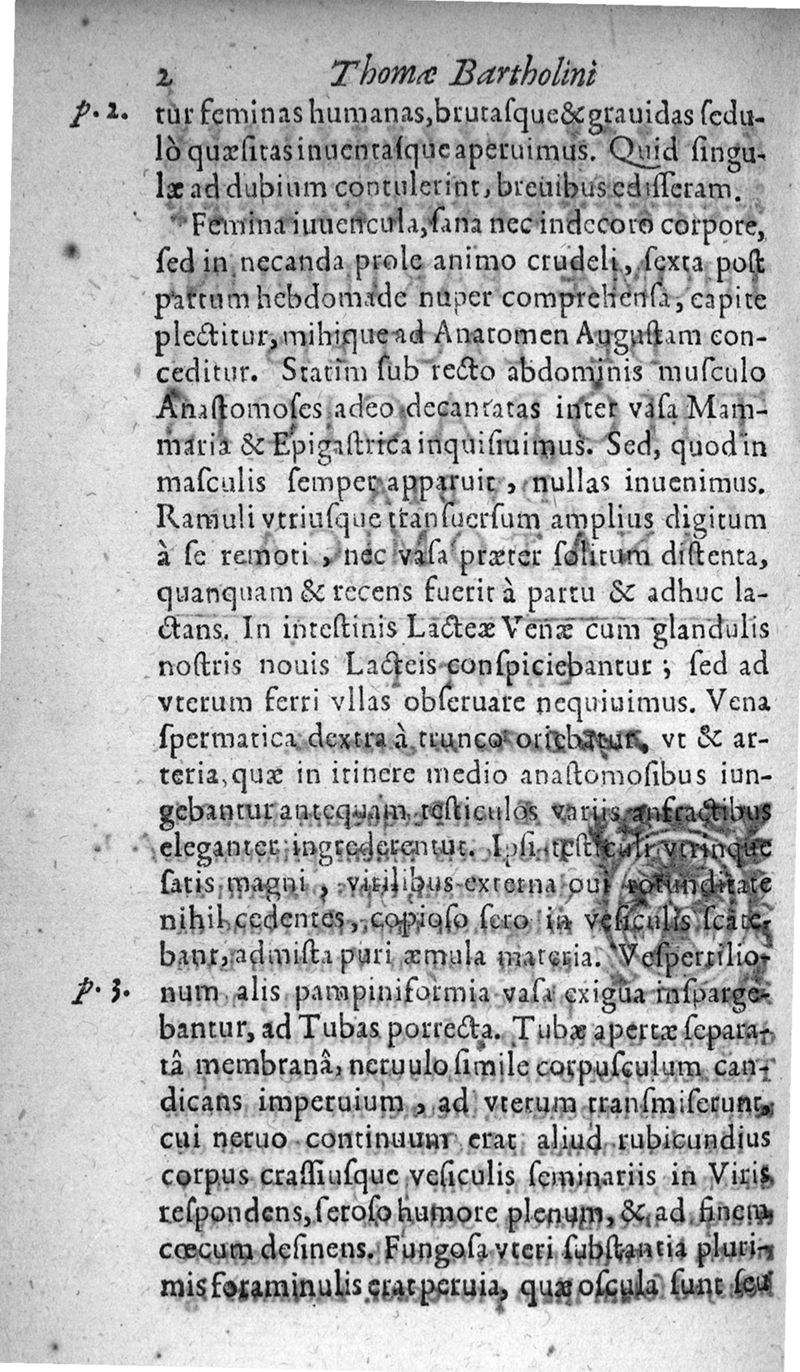 2 Thomæ Bartholini
p. 2. tur feminas humanas, brutaſque & grauidas ſedu-
lò quæſitas inuentaſque aperuimus. Quid ſingu-
læ ad dubium contulerint, breuibus ediſſeram.
Femina iuuencula, ſana nec indecoro corpore,
ſed in necanda prole animo crudeli, ſexta poſt
partum hebdomade nuper comprehenſa, capite
plectitur, mihique ad Anatomen Auguſtam con-
ceditur. Statim ſub recto abdominis muſculo
Anaſtomoſes adeo decantatas inter vaſa Mam-
maria & Epigaſtrica inquiſiuimus. Sed, quod in
maſculis ſemper apparuit, nullas inuenimus.
Ramuli vtriuſque tranſuerſum amplius digitum
à ſe remoti, nec vaſa præter ſolitum diſtenta,
quanquam & recens fuerit à partu & adhuc la-
ctans. In inteſtinis Lacteæ Venæ cum glandulis
noſtris nouis Lacteis conſpiciebantur; ſed ad
vterum ferri vllas obſeruare nequiuimus. Vena
ſpermatica dextra à trunco oriebatur, vt & ar-
teria, quæ in itinere medio anaſtomoſibus iun-
gebantur antequam teſticulos variis anfractibus
eleganter ingrederentur. Ipſi teſticuli vtrinque
ſatis magni, virilibus externa oui rotunditate
nihil cedentes, copioſo ſero in veſiculis ſcate-
bant, admiſta puri æmula materia. Veſpertilio-
p. 3. num alis pampiniformia vaſa exigua inſparge-
bantur, ad Tubas porrecta. Tubæ apertæ ſepara-
tâ membranâ, neruulo ſimile corpuſculum can-
dicans imperuium, ad vterum tranſmiſerunt,
cui neruo continuum erat aliud rubicundius
corpus craſſiuſque veſiculis ſeminariis in Viris
reſpondens, ſeroſo humore plenum, & ad finem
cœcum deſinens. Fungoſa vteri ſubſtantia pluri-
mis foraminulis erat peruia, quæ oſcula ſunt ſeu